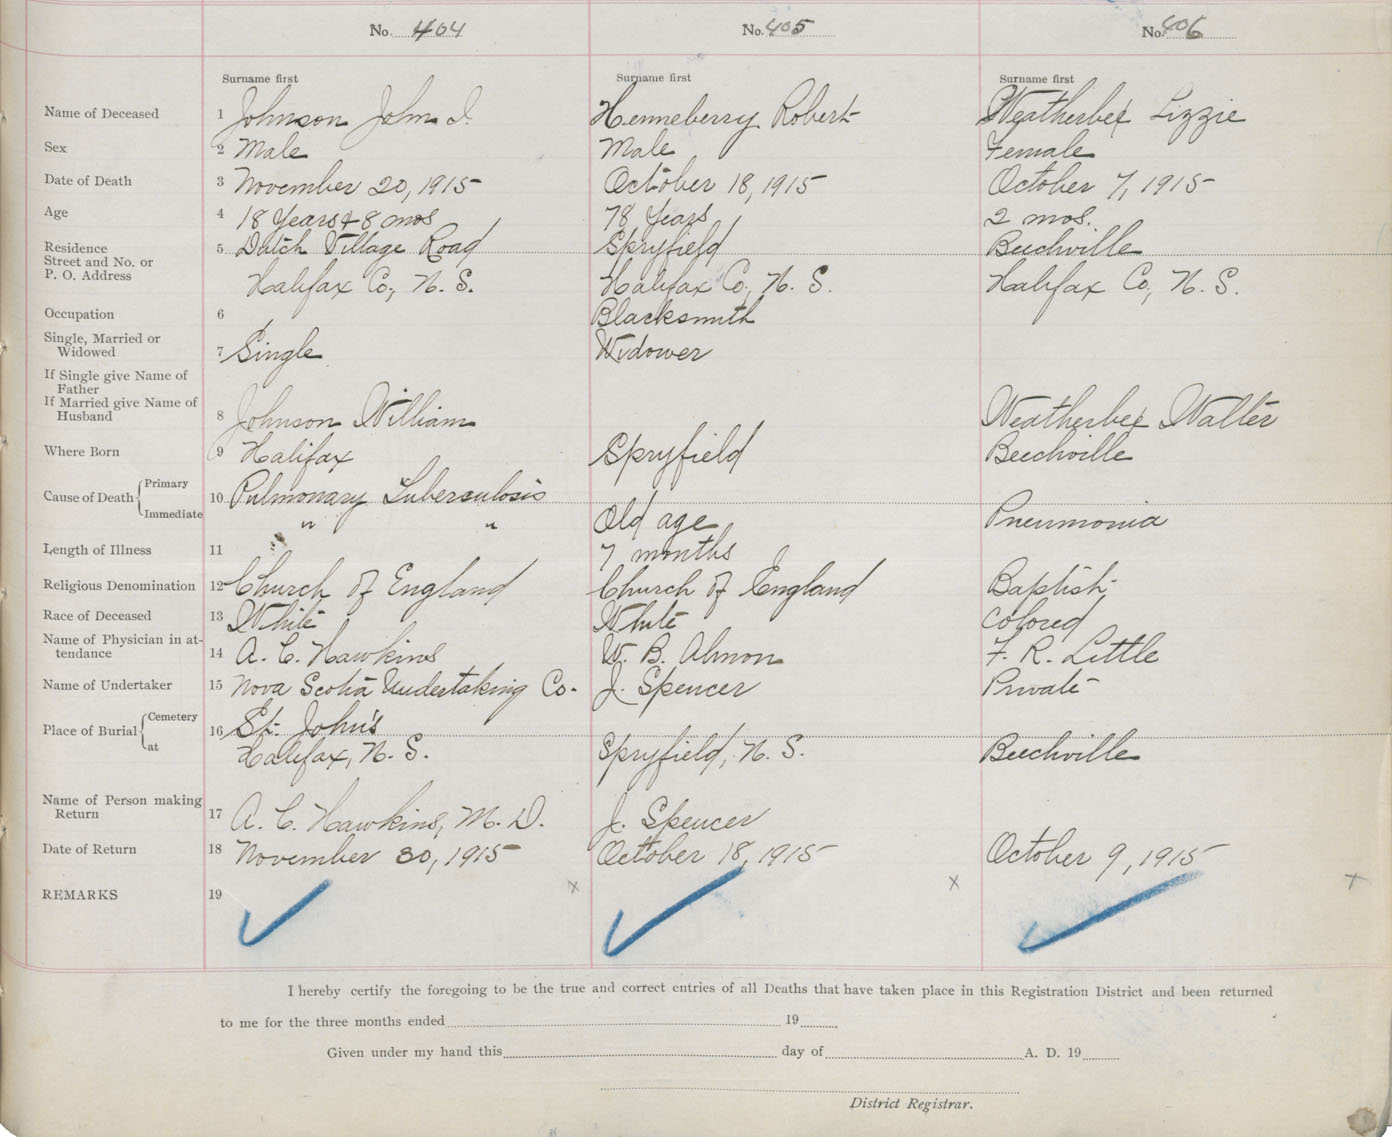 No. 404 No. 405 No. 406
Surname first Surname first Surname first
Name of Deceased 1 Johnson John I. Henneberry Robert Weatherbee Lizzie
Sex 2 Male Male Female
Date of Death 3 November 20, 1915 October 18, 1915 October 7, 1915
Age 4 18 Years & 8 mos 78 Years 2 mos.
Residence 5 Dutch Village Road Spryfield Beechville
Street and No. or
P. O. Address Halifax Co, N. S. Halifax Co, N. S. Halifax Co, N. S.
Occupation 6 Blacksmith
Single, Married or
Widowed 7 Single Widower
If Single give Name of
Father
If Married give Name of
Husband 8 Johnson William Weatherbee Walter
Where Born 9 Halifax Spryfield Beechville
Cause of Death { Primary 10 Pulmonary Tuberculosis
Immediate " " Old age Pneumonia
Length of Illness 11 7 months
Religious Denomination 12 Church of England Church of England Baptist
Race of Deceased 13 White White Colored
Name of Physician in at-
tendance 14 A. C. Hawkins W. B. Almon F. R. Little
Name of Undertaker 15 Nova Scotia Undertaking Co. J. Spencer Private
Place of Burial { Cemetery 16 St. John's
at Halifax, N. S. Spryfield, N. S. Beechville
Name of Person making
Return 17 A. C. Hawkins, M. D. J. Spencer
Date of Return 18 November 30, 1915 October 18, 1915 October 9, 1915
REMARKS 19 x x x
I hereby certify the foregoing to be the true and correct entries of all Deaths that have taken place in this Registration District and been returned
to me for the three months ended 19
Given under my hand this day of A. D. 19
District Registrar.